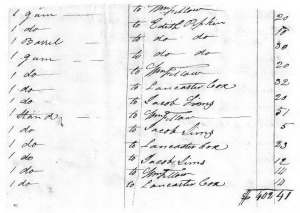 1 gum — to Wm Fellow 20
1 do to Edith Pipkin
1 Barrel — to do do 30
1 gum — to do do 20
1 do to Wm Fellow 20
1 do to Lancaster Cox 32
1 do to Jacob Sims 20
1 Stand to Wm Fellow 51
1 do to Jacob Sims 5
1 do to Lancaster Cox 23
1 do to Jacob Sims 12
1 do to Wm Fellow 14
1 do to Lancaster Cox
$ 402 41